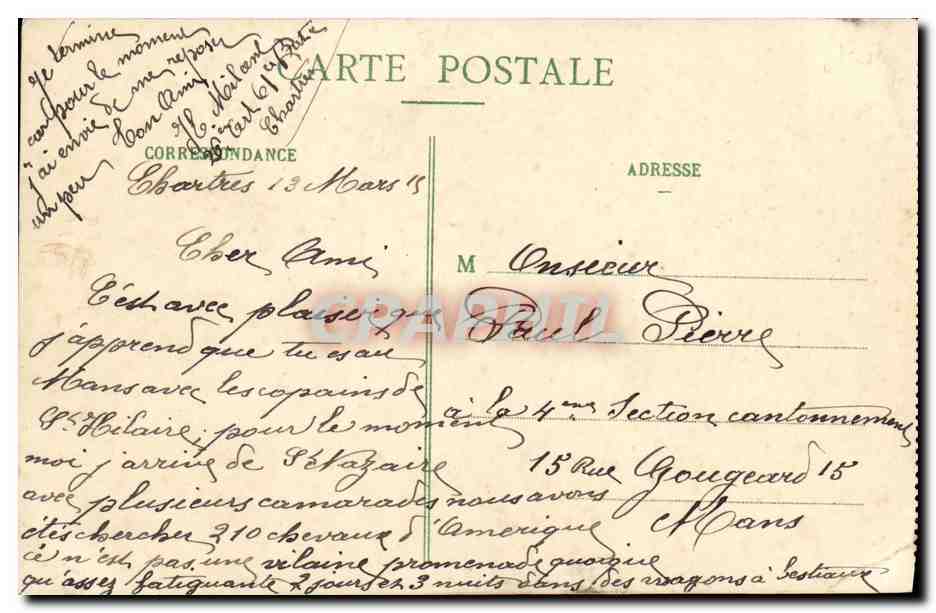 CARTE POSTALE
CORRESPONDANCE
ADRESSE
Chartres 13 Mars 15
Cher Ami
C'est avec plaisir que
j'apprend que tu es au
Mans avec les copains de
St Hilaire; pour le moment
moi j'arrive de St Nazaire
avec plusieurs camarades nous avons
étés chercher 210 chevaux d'Amerique
ce n'est pas une vilaine promenade quoique
qu'assez fatiguante 2 jours et 3 nuits dans des wagons à bestiaux
Je termine
pour le moment
car j'ai envie de me reposer
un peu Ton Ami
H. Milant
Chartres
M Onsieur
Paul Pierre
à la 4me Section cantonnement
15 Rue Gougeard 15
Mans
CARPHIL